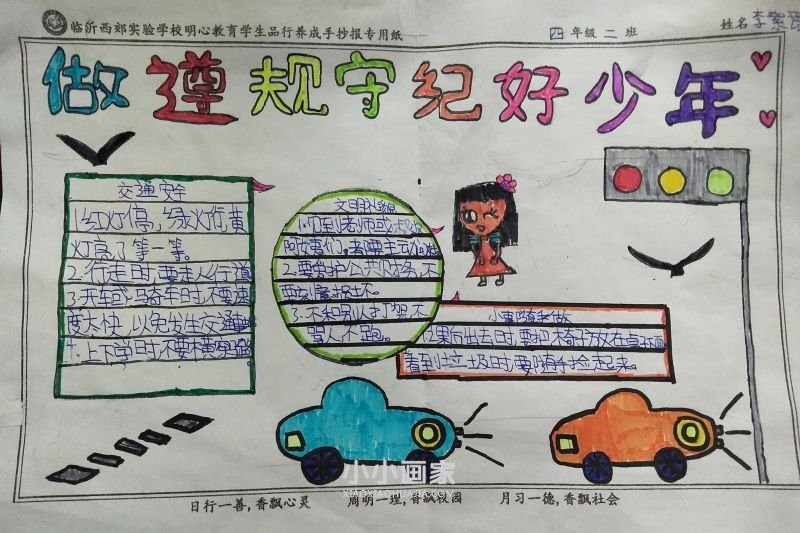 临沂西郊实验学校明心教育学生品行养成手抄报专用纸
四年级二班
姓名李紫
做遵规守纪好少年
交通安全
1.红灯停,绿灯行,黄
灯亮了等一等。
2.行走时要走人行道
3.开车或骑车时不要速
度太快,以免发生交通
4.上下学时不要横穿
文明礼貌
1.见到老师或
阿姨们,都要主动
2.要爱护公共财务,不
要刻意损坏。
3.不和别人打架不
骂人不跑。
小事随手做
1.课后出去时,要把椅子放在桌子
看到垃圾时要随手捡起来。
小小画家
日行一善,香飘心灵 周明一理,香飘校园 月习一德,香飘社会